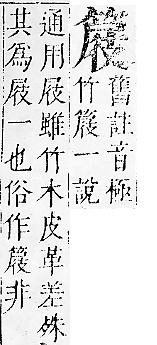 舊註音極
竹一說
通用屐雖竹木皮革差殊
其為屐一也俗作非